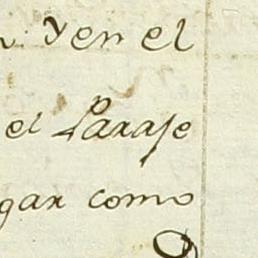 yen el
el Paraje
gar como